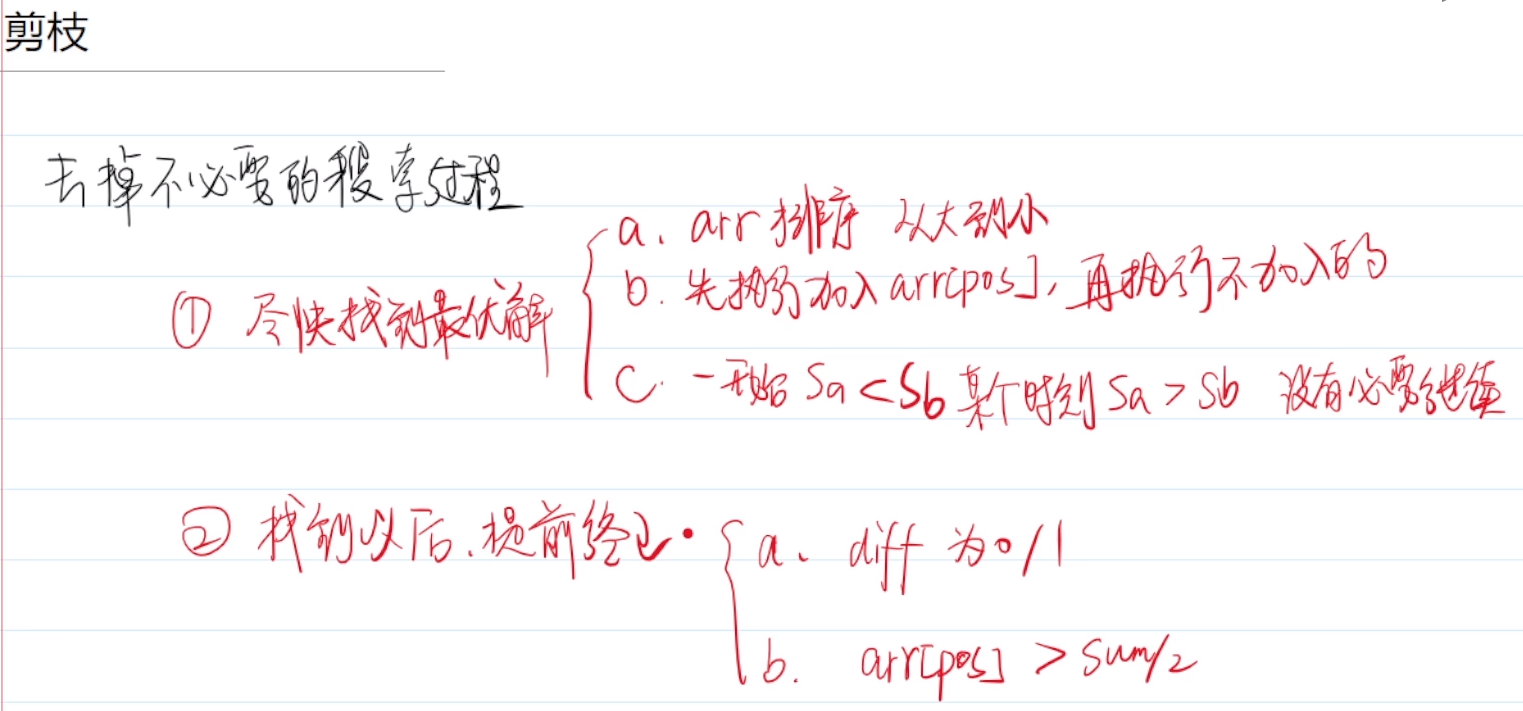 剪枝
去掉不必要的搜索过程
① 尽快找到最优解
a. arr 排序 从大到小
b. 先执行加入 arr[pos], 再执行不加入的
C. 一开始 Sa < Sb 某个时刻 Sa > Sb 没有必要继续
② 找到以后、提前终止.
a. diff 为 0/1
b. arr[pos] > sum/2